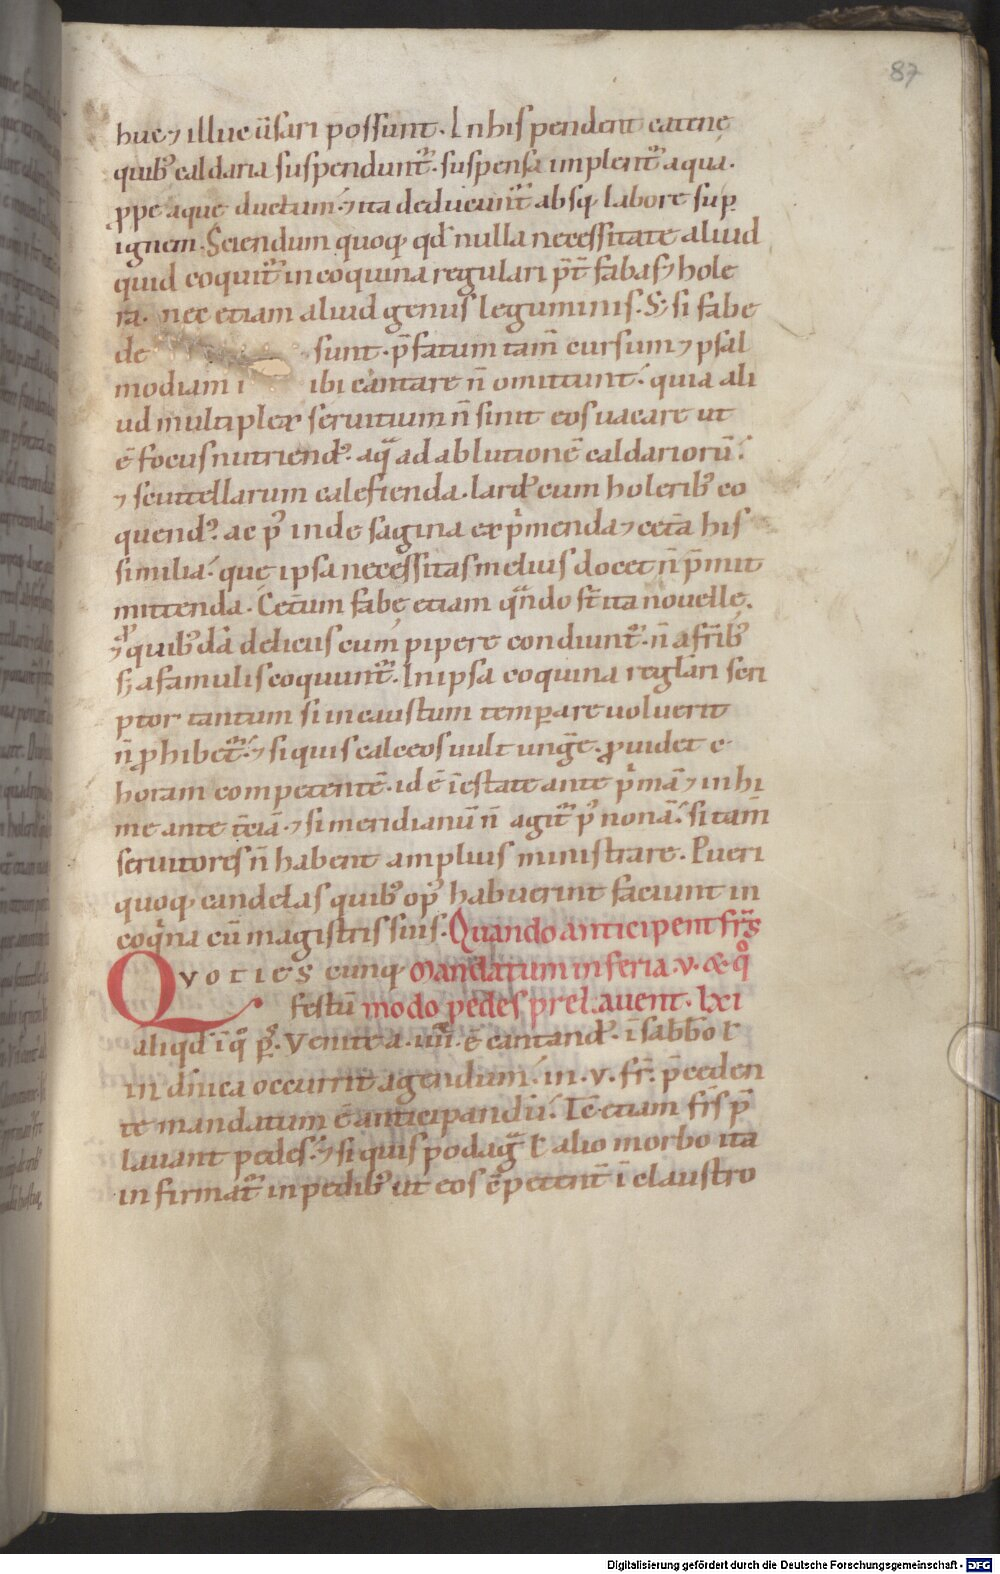 87
huc ⁊ illuc ūsari possunt. In his pendent catenę
quib᷒ caldaria suspendunt᷑. suspensa implent᷑ aqua.
ꝓpe aquę ductum. ⁊ ita deducunt᷑ absq; labore suꝑ
ignem. Sciendum quoq; qd̓ nulla necessitate aliud
quid coquit᷑ in coquina regulari p̄t̄ fabas ⁊ hole
ra. nec etiam aliud genus leguminis. S; si fabe
de sunt. p̄fatum tam̄ cursum ⁊ psal
modiam i ibi cantare n̄ omittunt. quia ali
ud multiplex seruitium n̄ sinit eos uacare ut
ē focus nutriend᷒. aq̄ ad ablutionē caldariorū.
⁊ scutellarum calefienda. lard᷒ cum holerib᷒ co
quend᷒. ac p᷒ inde sagina exp̓menda ⁊ cet̄a his
similia. quę ipsa necessitas melius docet n̄ p̄mit
mittenda. Cet̄um fabę etiam qn̄do st̄ ita nouellę.
⁊ quib᷒dā deliciis cum pipere condiunt᷑. n̄ a fr̄ib᷒
s; a famulis coquunt᷑. In ipsa coquina reglari scri
ptor tantum si incaustum temꝑare uoluerit
n̄ ꝓhibet᷑. ⁊ si quis calceos uult unḡe. ꝓuidet e
horam competentē. id ē ī estate ante p̓mā ⁊ in hi
me ante t̄ciā. ⁊ si meridianū n̄ agit᷑ p᷒ nonā. si tam̄
seruitores n̄ habent amplius ministrare. Pueri
quoq; candelas quib᷒ op᷒ habuerint faciunt in
coq̓na cū magistris suis. Quando anticipent fr̄s
Quotiescunq; mandatum in feria .v. & q̊
festū modo pedes prel.auent. lxi
aliqd̓ ī q̊ p᷒. Venite a .iiii. ē cantand᷒. ī sabb̄o ł
in dn̄ica occurrit agendum. in .v. fr̄. p̄ceden
te mandatum ē anticipandū. Tc̄ etiam fr̄s p̄
lauant pedes. ⁊ si quis podag̃ ł alio morbo ita
infirmat᷑ in pedib᷒ ut eos ē petent̄ ī claustro
Digitalisierung gefördert durch die Deutsche Forschungsgemeinschaft - DFG